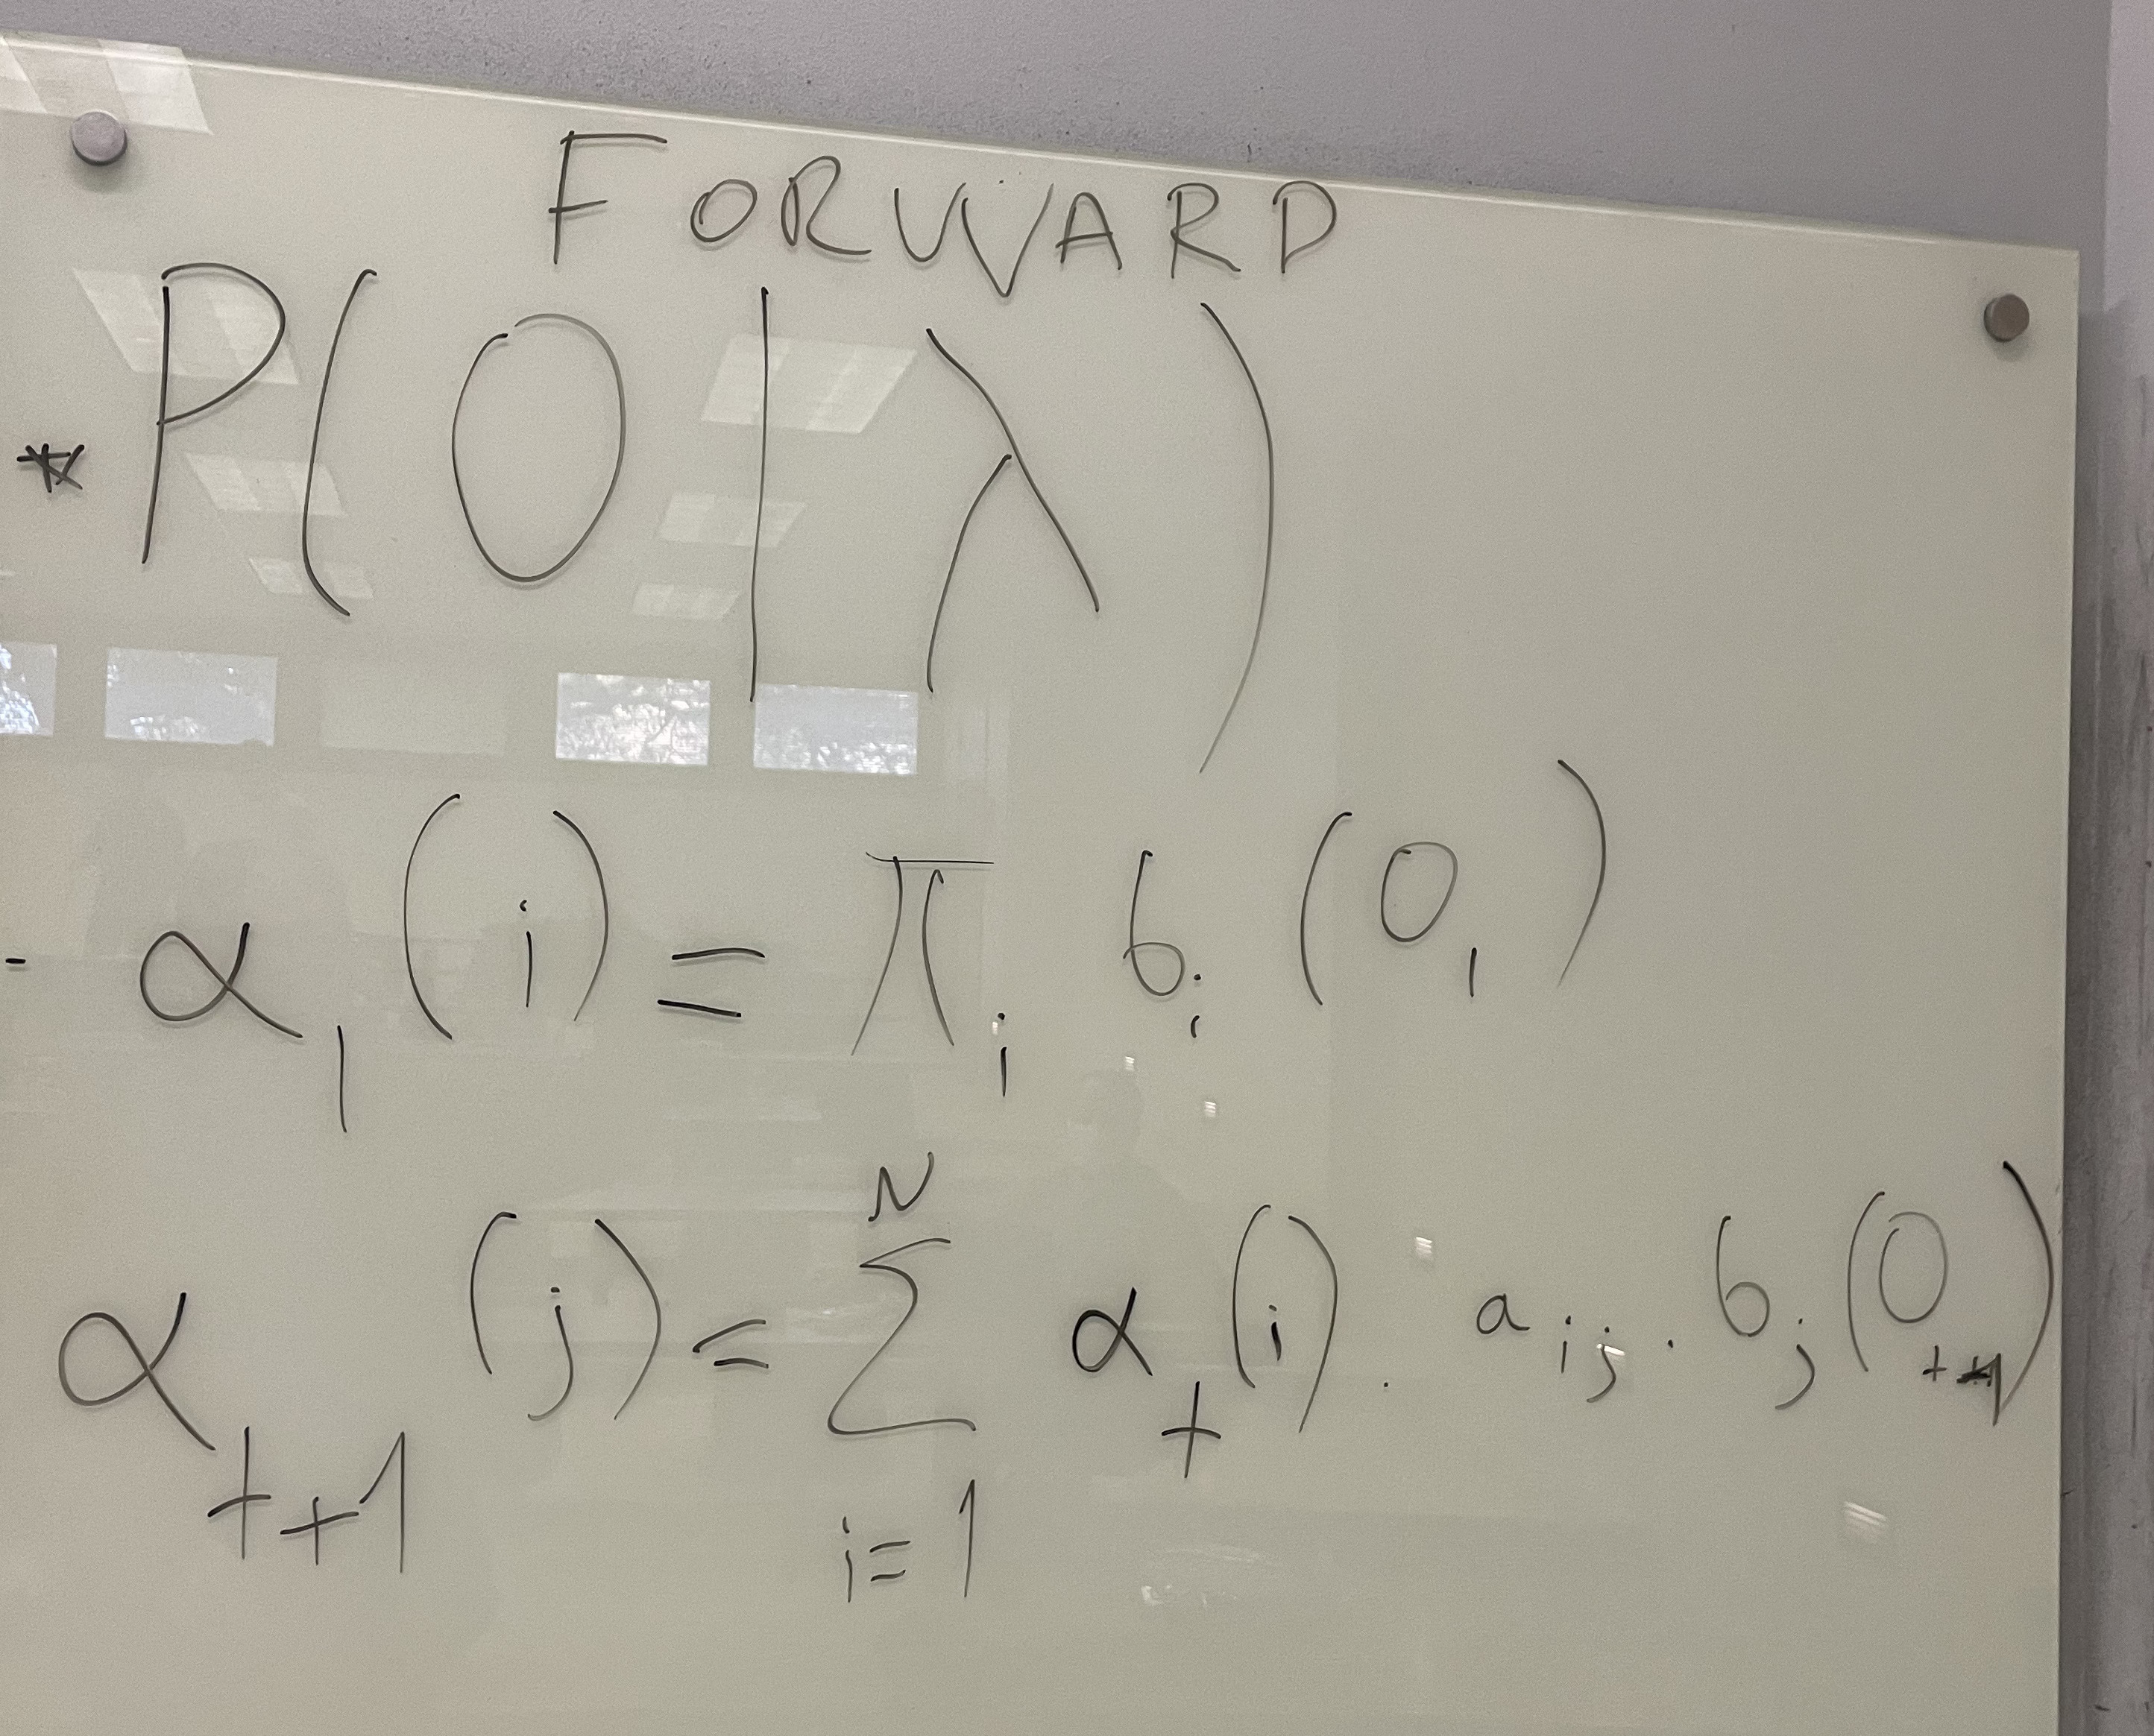 FORWARD
* P(O|λ)
- α₁(i) = πᵢ bᵢ(O₁)
αₜ₊₁(j) = Σᵢ₌₁ᴺ αₜ(i) . aᵢⱼ . bⱼ(Oₜ₊₁)